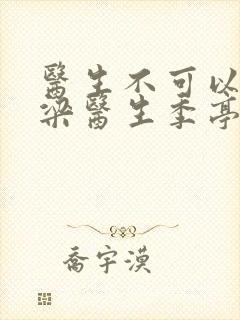 醫生不可以
梁醫生季亭
喬宇漠